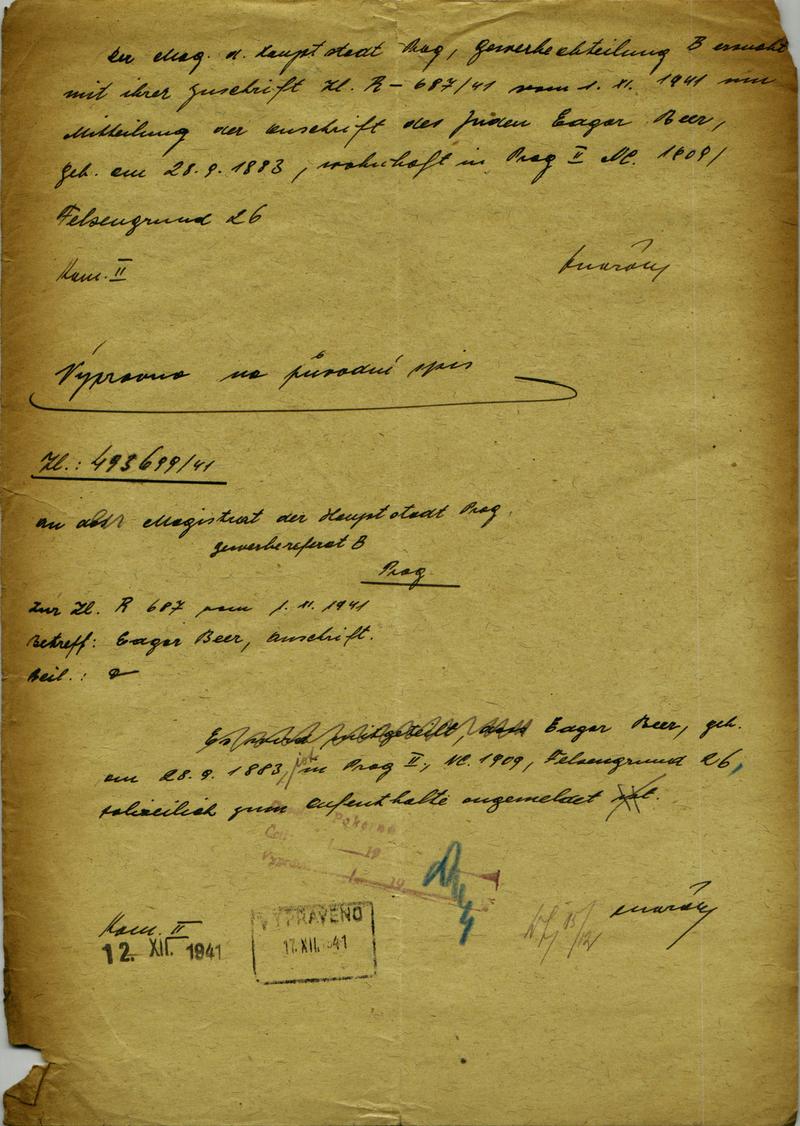 Der Mag. d. Hauptstadt Prag, Gewerbeabteilung B ersucht
mit ihrer Zuschrift Zl. R - 687/41 vom 1. XI. 1941 um
Mitteilung der Anschrift des Juden Edgar Beer,
geb. am 28.9.1883, wohnhaft in Prag II NC. 1909/
Felsengrund 26
Kom. II
Výpravna na původní spis
Zl.: 493699/41
An Magistrat der Hauptstadt Prag.
Gewerbereferat B
Prag
Zur Zl. R 687 vom 1. XI. 1941
Betreff: Edgar Beer, Anschrift.
Beil.:
Es wird mitgeteilt, dass Edgar Beer, geb.
am 28.9.1883, ist in Prag II., NC. 1909, Felsengrund 26,
polizeilich zum Aufenthalte angemeldet ist.
Kom. II
12. XII. 1941
VYPRAVENO
17. XII. 1941
15/12